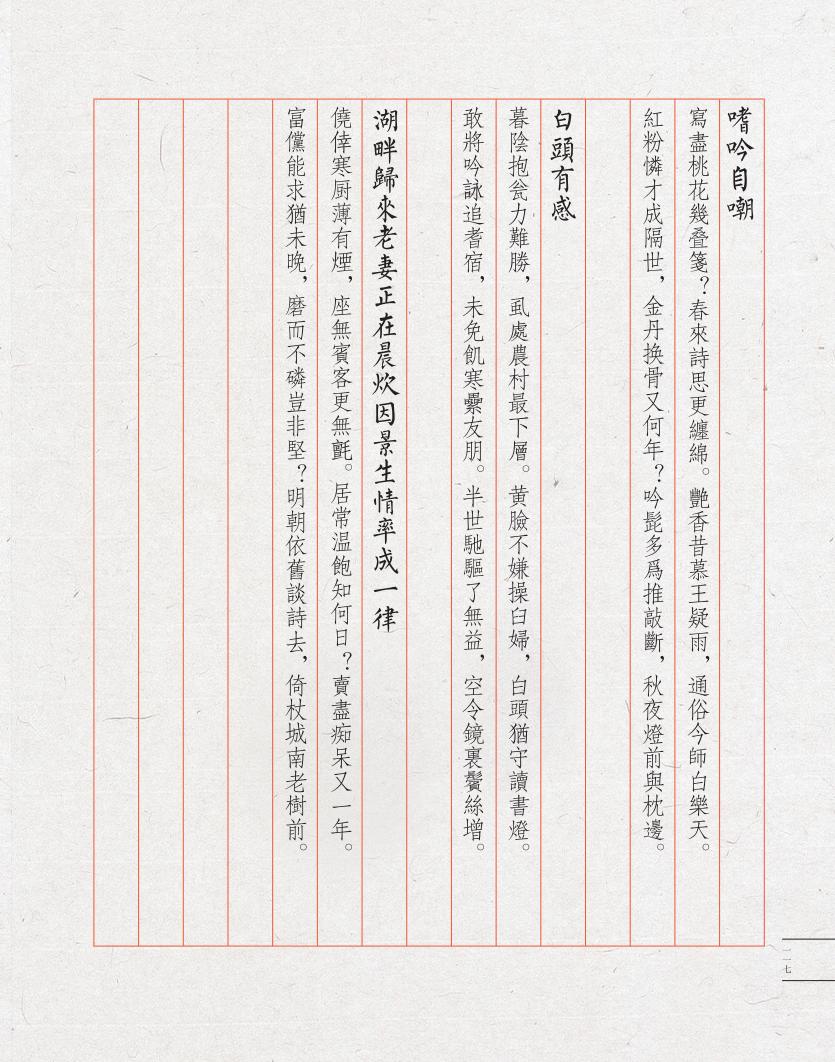 嗜吟自嘲
寫盡桃花幾叠箋？春來詩思更纏綿。艷香昔慕王疑雨，通俗今師白樂天。
紅粉憐才成隔世，金丹换骨又何年？吟髭多爲推敲斷，秋夜燈前與枕邊。
白頭有感
暮陰抱瓮力難勝，虱處農村最下層。黄臉不嫌操臼婦，白頭猶守讀書燈。
敢將吟詠追耆宿，未免飢寒纍友朋。半世馳驅了無益，空令鏡裏鬢絲增。
湖畔歸來老妻正在晨炊因景生情率成一律
僥倖寒厨薄有煙，座無賓客更無氈。居常温飽知何日？賣盡痴呆又一年。
富儻能求猶未晚，磨而不磷豈非堅？明朝依舊談詩去，倚杖城南老樹前。
一一七